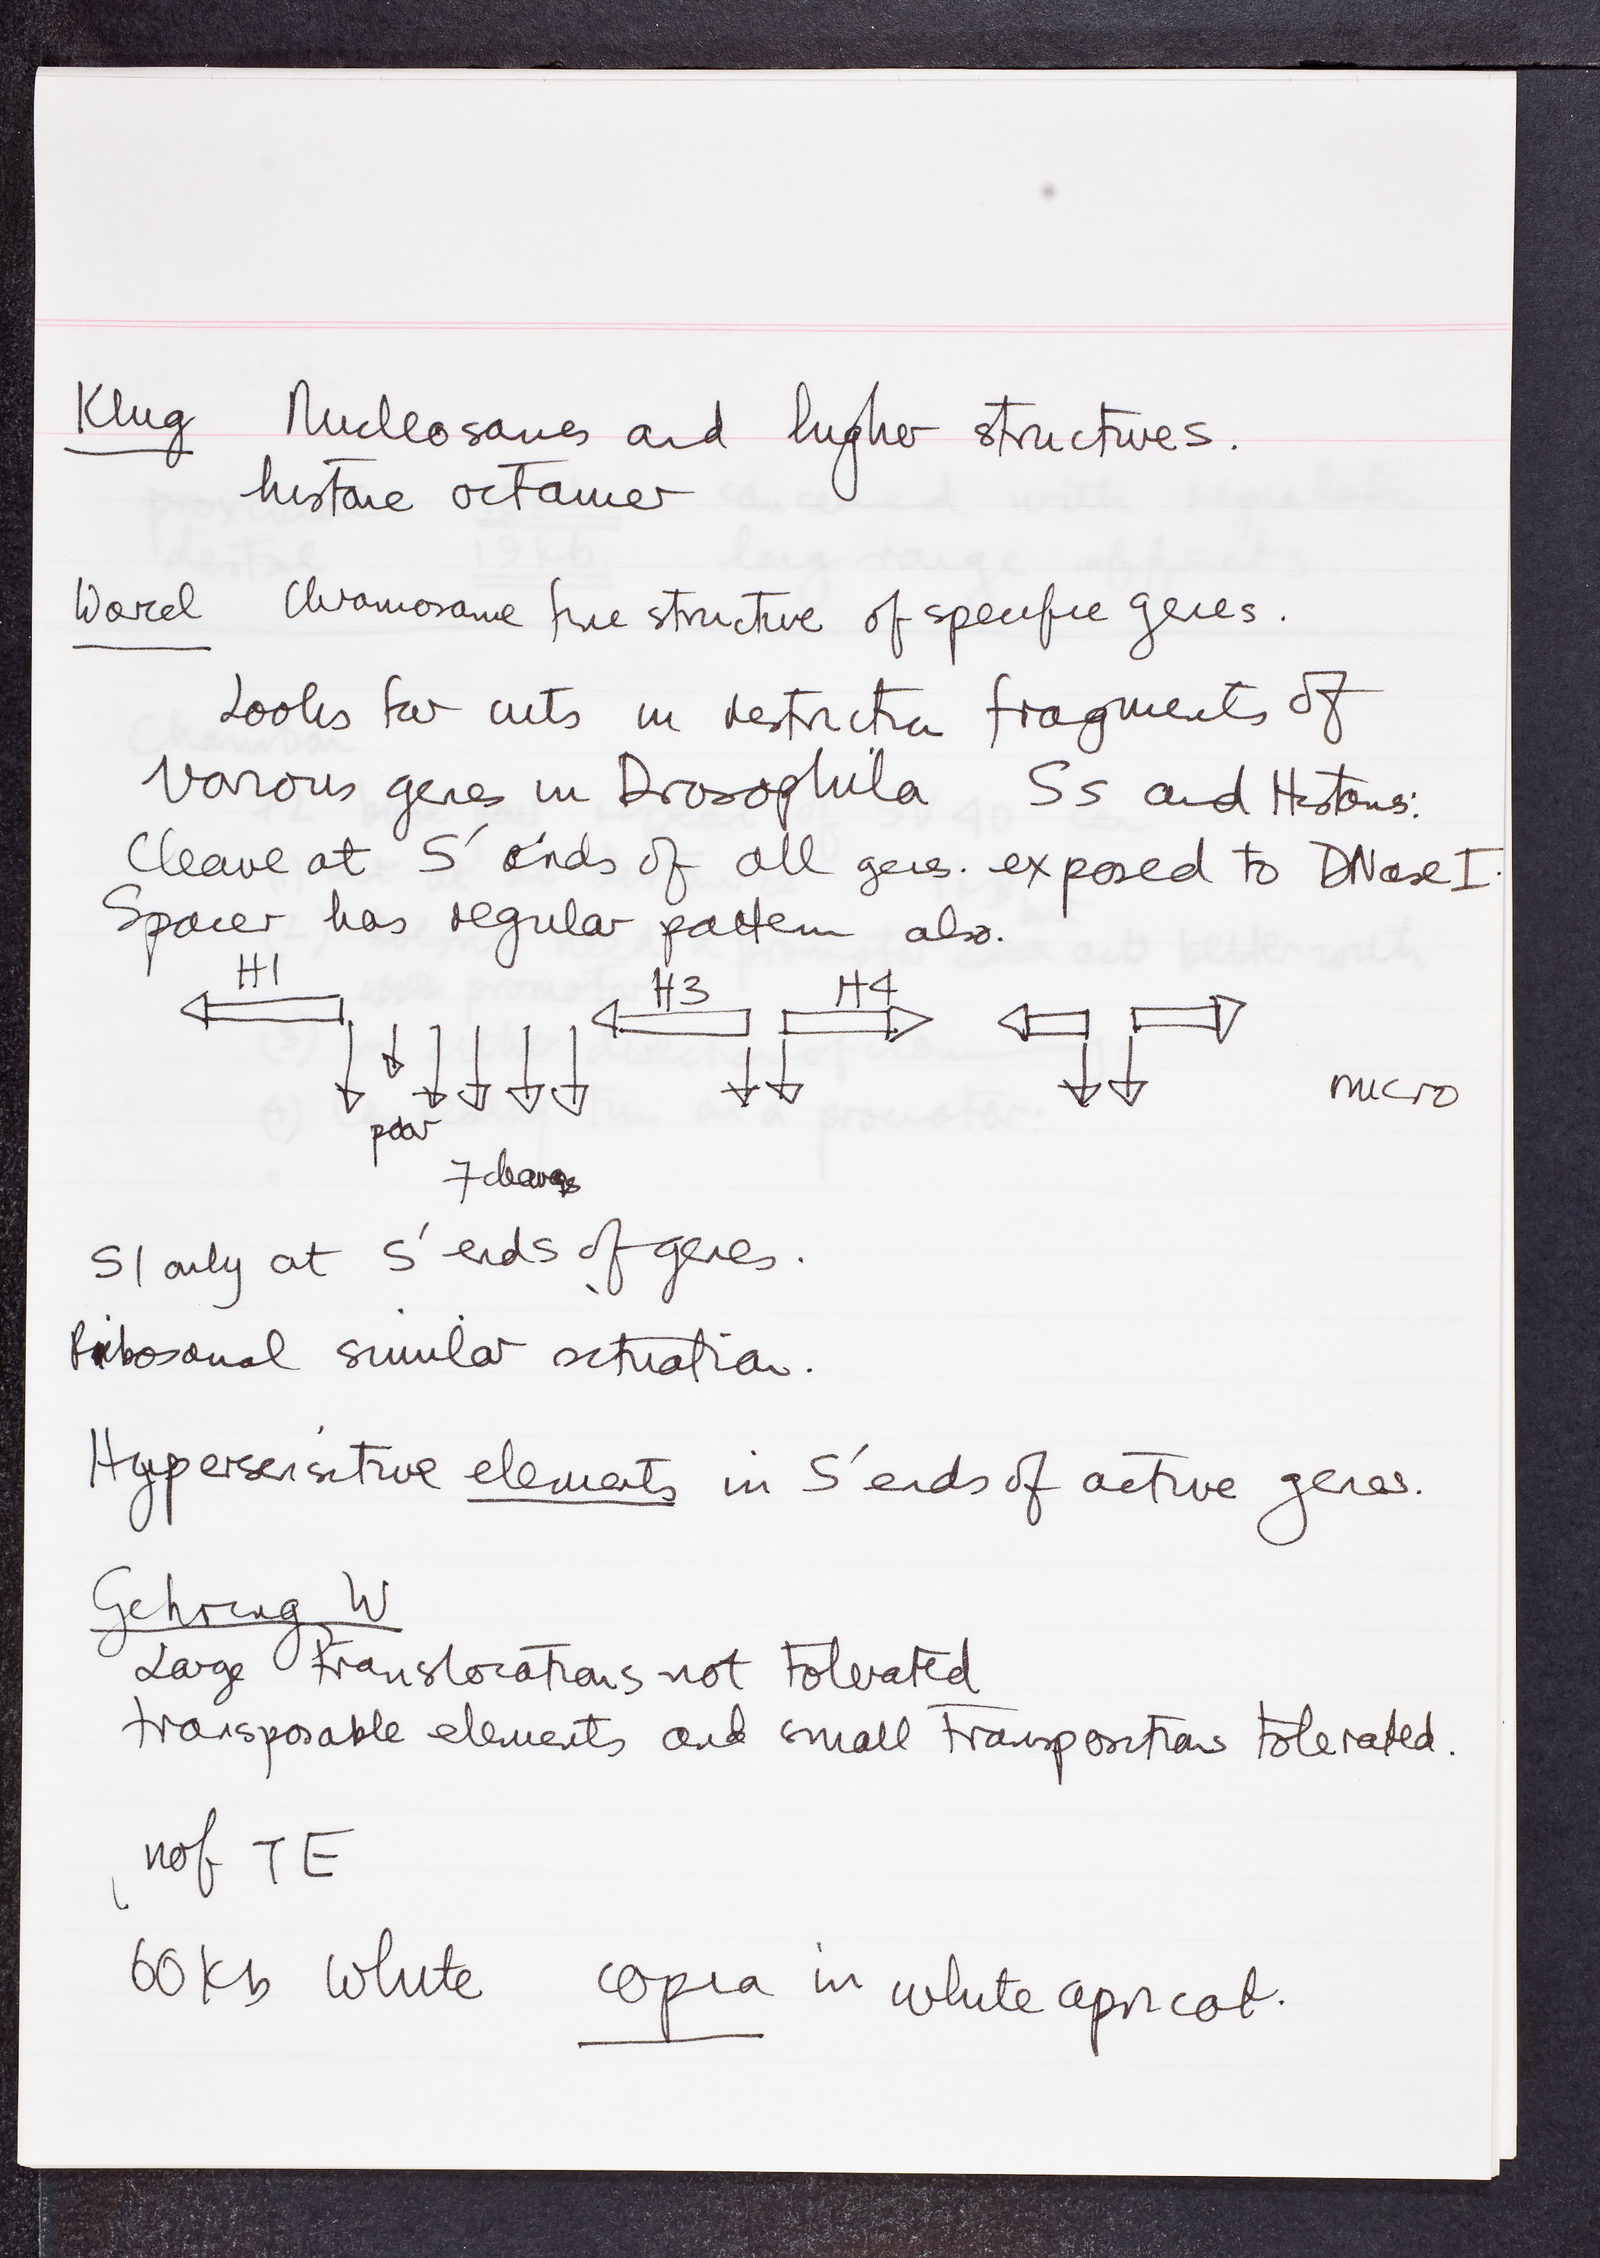 Klug Nucleosomes and higher structures.
histone octamer
Worcel Chromosome fine structure of specific genes.
Looks for cuts in restriction fragments of
various genes in Drosophila 5s and Histones:
Cleave at 5' ends of all genes. exposed to DNase I.
Spacer has regular pattern also.
H1 H3 H4
micro
poor
7 cleavages
S1 only at 5' ends of genes.
Ribosomal similar situation.
Hypersensitive elements in 5' ends of active genes.
Gehring W
Large Translocations not tolerated
transposable elements and small Transpositions tolerated.
TE
60 Kb white copia in white apricot.